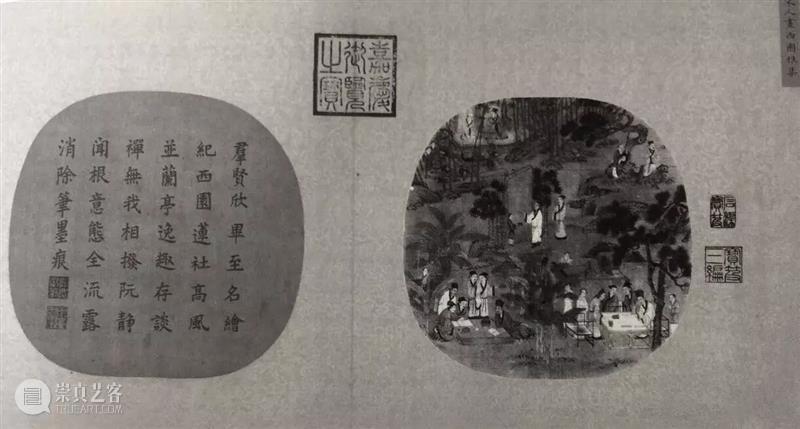 人畫西園雅集
寶笈
三編
嘉慶
御覽
之寶
羣賢欣畢至名繪
紀西園蓮社高風
並蘭亭逸趣存談
禪無我相撥阮靜
聞根意態全流露
消除筆墨痕
崇真艺客
TRUEART.COM